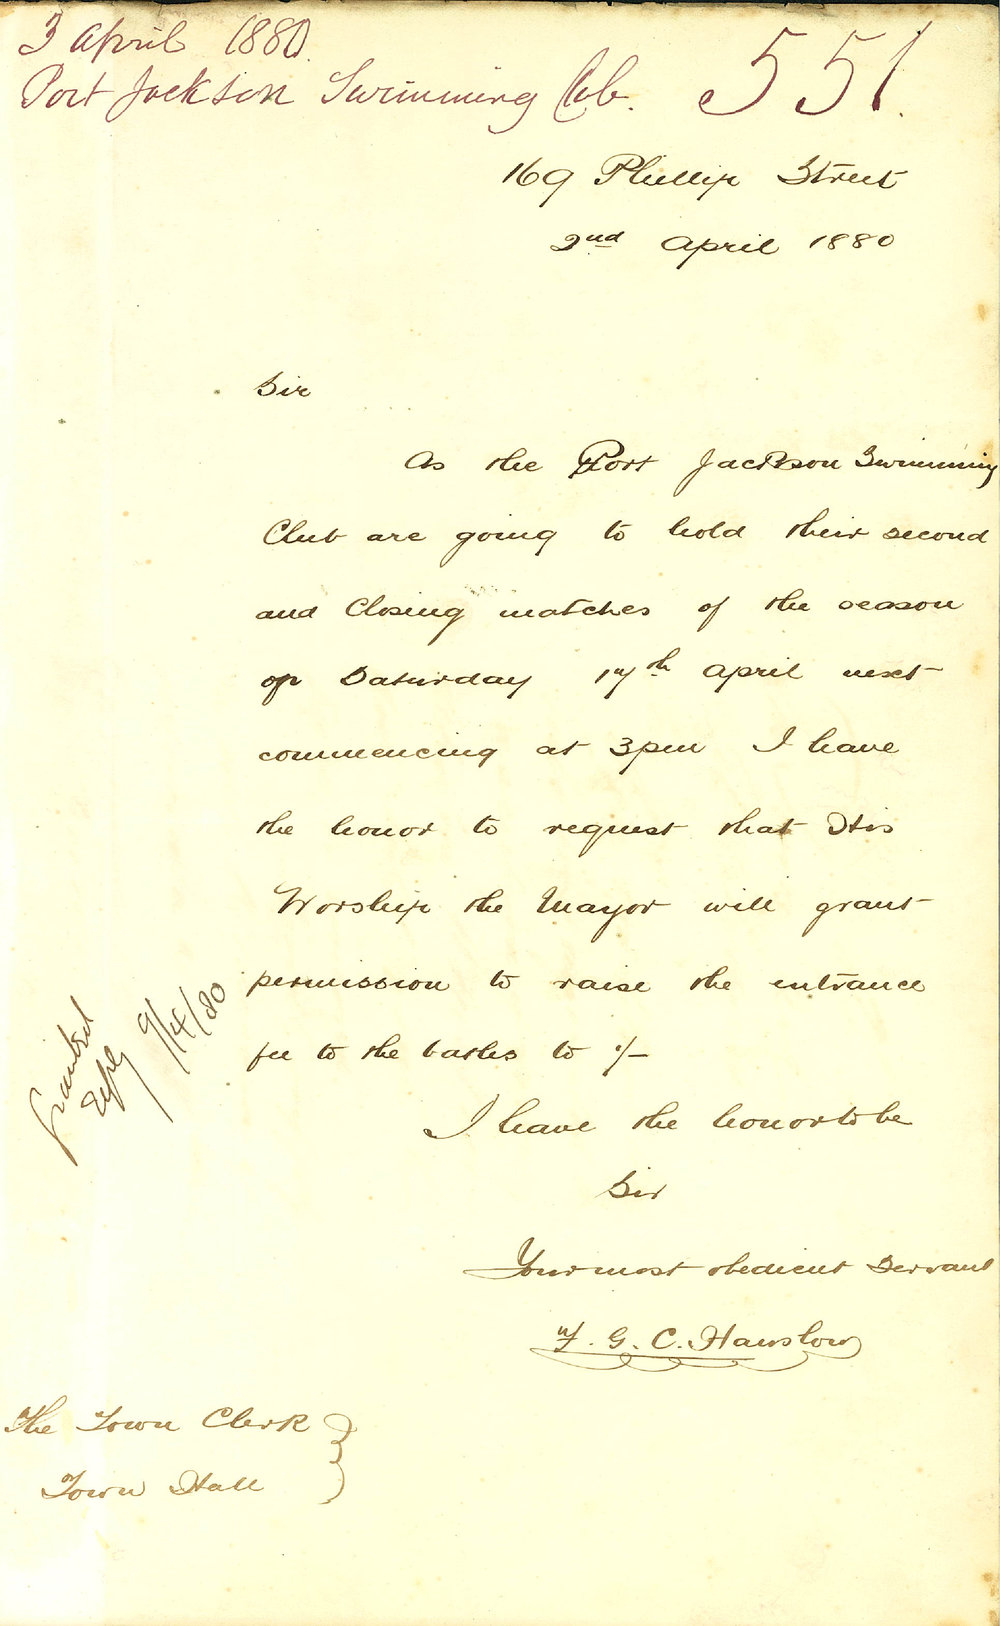 3 April 1880.
Port Jackson Swimming Club. 551.
169 Phillip Street
2nd April 1880
Sir
As the Port Jackson Swimming
Club are going to hold their second
and Closing matches of the season
on Saturday 17th April next
commencing at 3pm I have
the honor to request that His
Worship the Mayor will grant
permission to raise the entrance
fee to the baths to 1/-
I have the honor to be
Sir
Your most obedient Servant
F. G. C. Hanslow
Granted
9/4/80
The Town Clerk
Town Hall